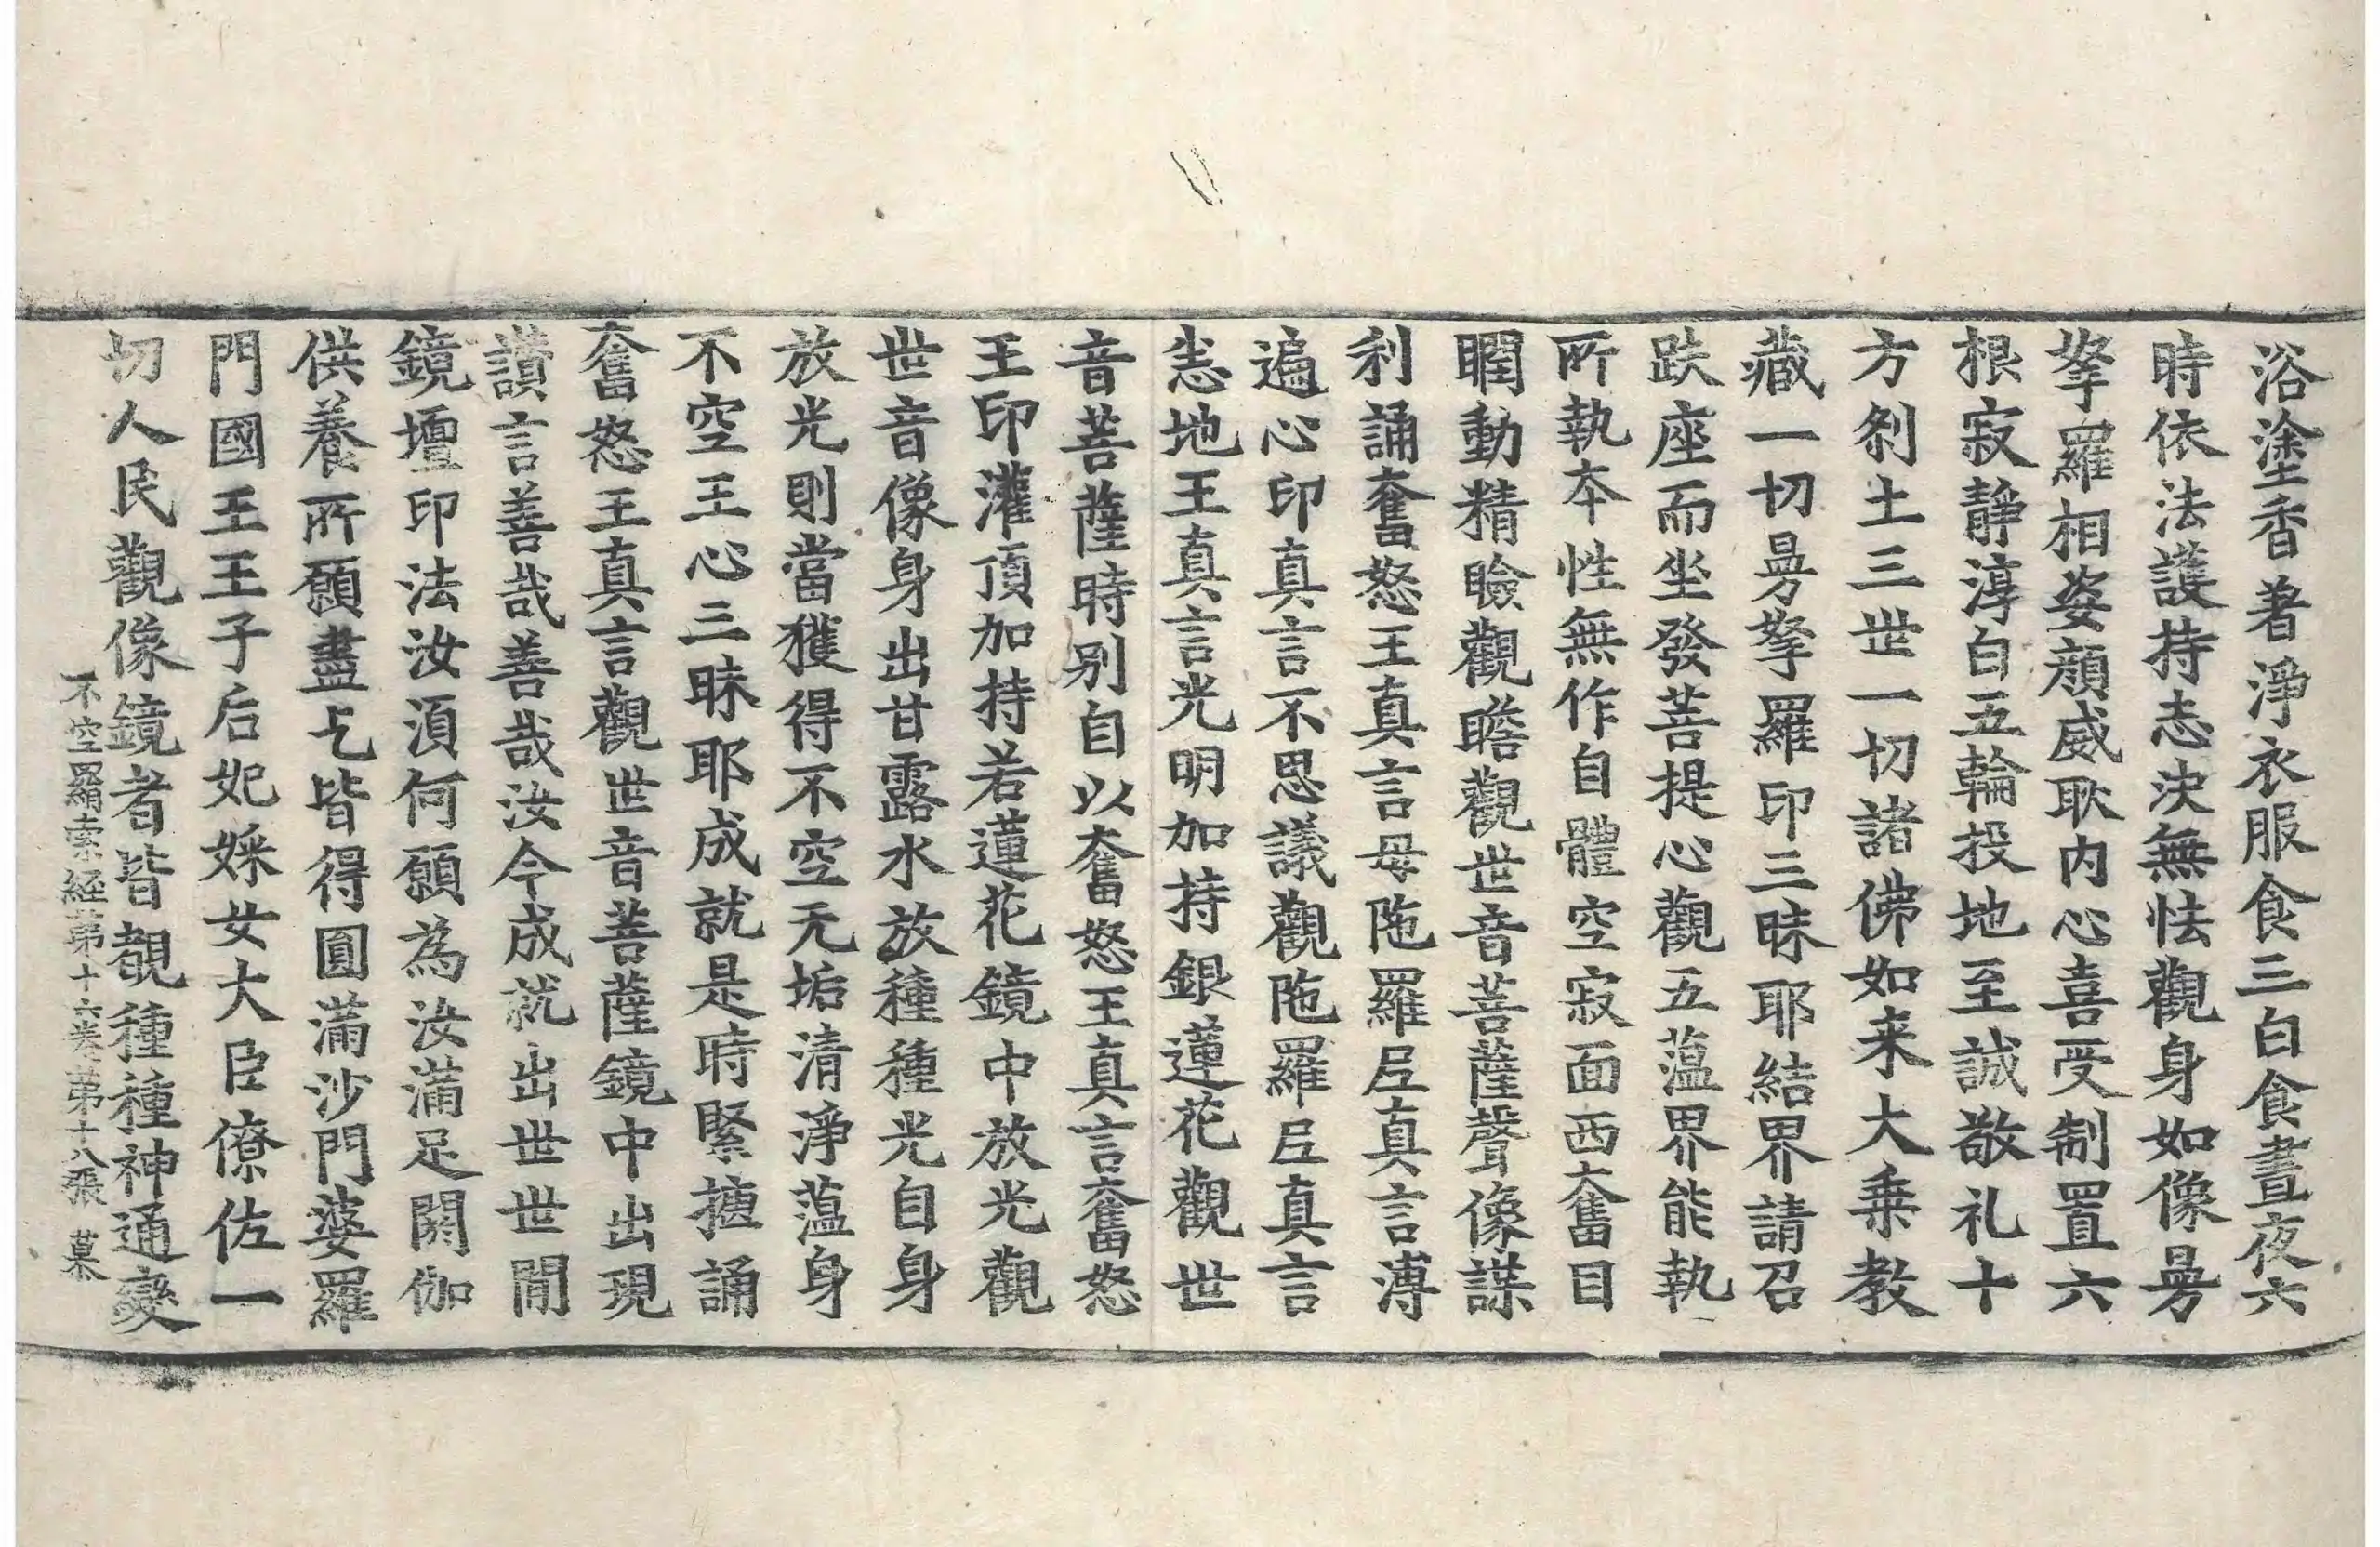 浴塗香著淨衣服食三白食晝夜六
時依法護持志決無怯觀身如像曼
拏羅相姿顔威耿内心喜受制置六
根寂靜淳白五輪投地至誠敬礼十
方刹土三世一切諸佛如来大乗教
藏一切曼拏羅印三昧耶結界請召
趺座而坐發菩提心觀五蕰界能執
所執本性無作自體空寂面西奮目
瞤動精瞼觀瞻觀世音菩薩聲像謀
利誦奮怒王真言母陁羅𡰱真言溥
遍心印真言不思議觀陁羅𡰱真言
悉地王真言光明加持銀蓮花觀世
音菩薩時别自以奮怒王真言奮怒
王印灌頂加持若蓮花鏡中放光觀
世音像身出甘露水放種種光自身
放光則當獲得不空无垢清淨蕰身
不空王心三昧耶成就是時緊捴誦
奮怒王真言觀世音菩薩鏡中出現
讃言善哉善哉汝今成就出世世間
鏡壇印法汝湏何願為汝滿足閼伽
供養所願盡乞皆得圓滿沙門婆羅
門國王王子后妃婇女大臣僚佐一
切人民觀像鏡者皆覩種種神通變
不空羂索經第十六卷第十八張 慕